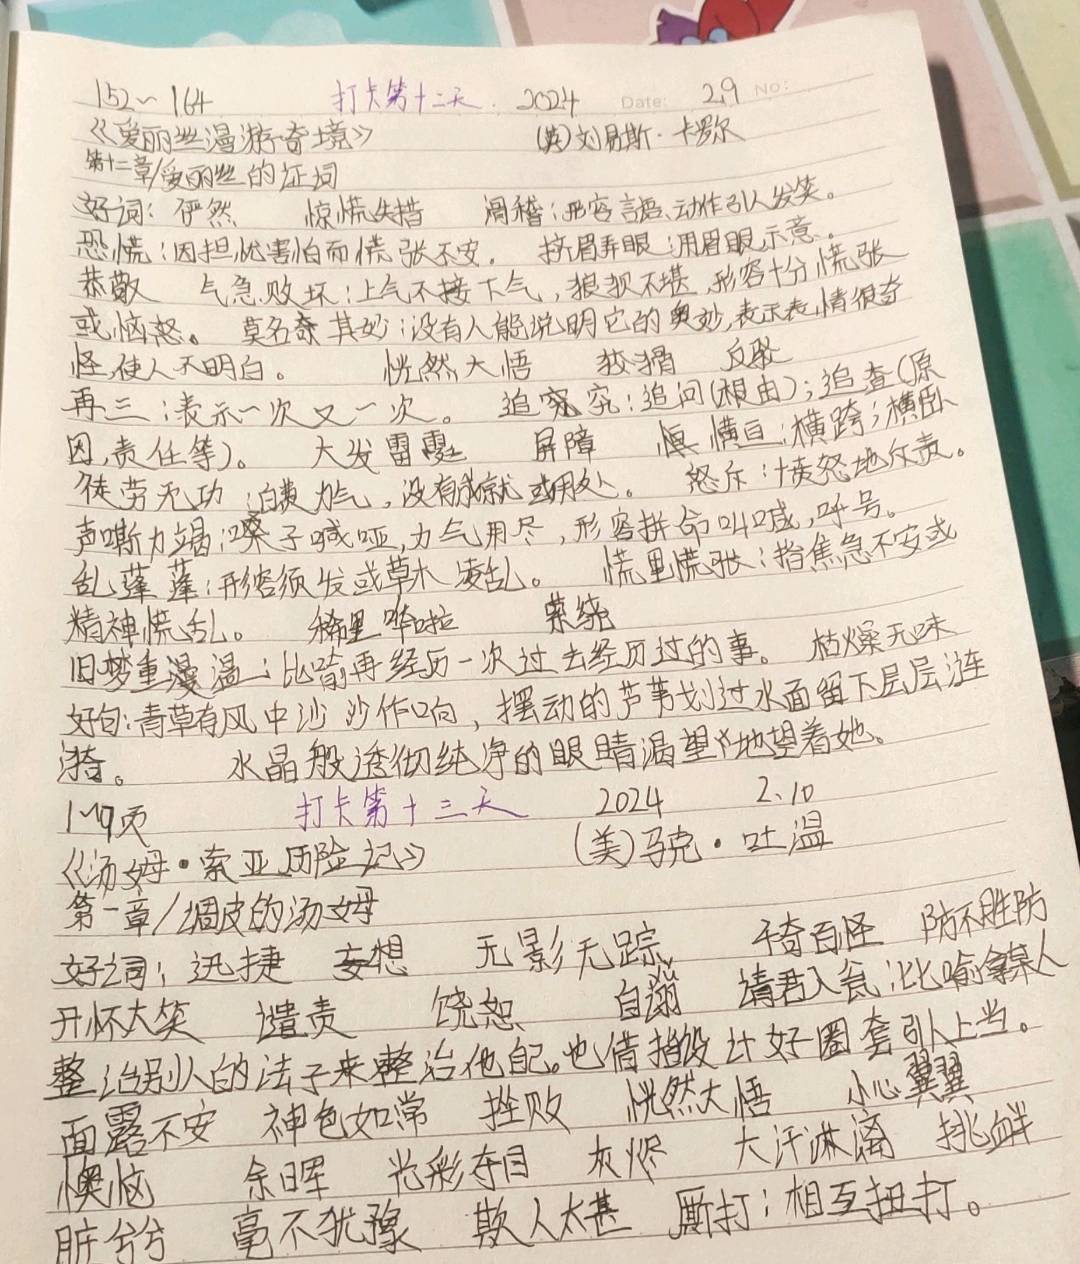 152~164 打卡第十二天. 2024 Date: 2.9 No:
《爱丽丝漫游奇境》 (英)刘易斯·卡罗尔
第十二章/爱丽丝的证词
好词: 俨然 惊慌失措 滑稽:形容言语、动作引人发笑。
恐慌:因担忧害怕而慌张不安。 挤眉弄眼:用眉眼示意。
恭敬 气急败坏:上气不接下气,狼狈不堪,形容十分慌张
或恼怒。 莫名奇其妙:没有人能说明它的奥妙,表示表情很奇
怪,使人不明白。 恍然大悟 狡猾 反驳
再三:表示一次又一次。 追究:追问(根由);追查(原
因,责任等)。 大发雷霆 屏障 横亘:横跨;横卧
徒劳无功:白费力气,没有成就或用处。 怒斥:愤怒地斥责。
声嘶力竭:嗓子喊哑,力气用尽,形容拼命叫喊,呼号。
乱蓬蓬:形容须发或草木凌乱。 慌里慌张:指焦急不安或
精神慌乱。 稀里哗啦 萦绕
旧梦重温:比喻再经历一次过去经历过的事。 枯燥无味
好句:青草有风中沙沙作响,摆动的芦苇划过水面留下层层涟
漪。 水晶般透彻纯净的眼睛渴望地望着她。
1~9页 打卡第十三天 2024 2.10
《汤姆·索亚历险记》 (美)马克·吐温
第一章/调皮的汤姆
好词: 迅捷 妄想 无影无踪 千奇百怪 防不胜防
开怀大笑 谴责 饶恕 自溺 请君入瓮:比喻拿某人
整治别人的法子来整治他自己。也借指设计好圈套引人上当。
面露不安 神色如常 挫败 恍然大悟 小心翼翼
懊恼 余晖 光彩夺目 灰烬 大汗淋漓 挑衅
脏兮兮 毫不犹豫 欺人太甚 厮打:相互扭打。